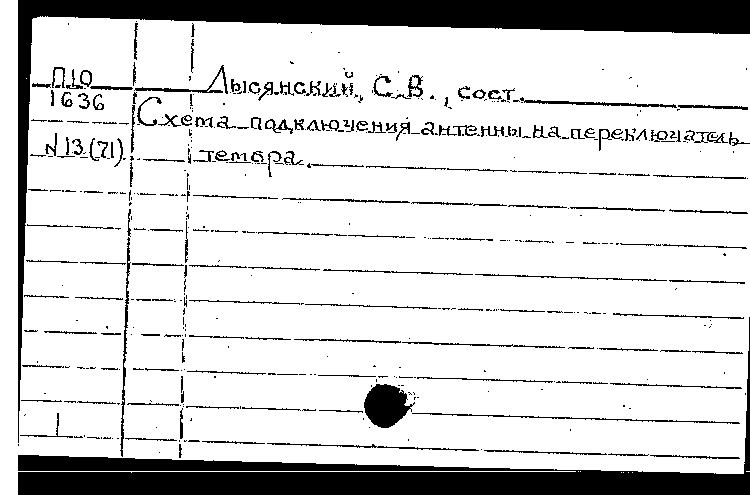 П10
1636
N13(71)
Лысянский, С.В., сост.
Схема подключения антенны на переключатель
тембра.